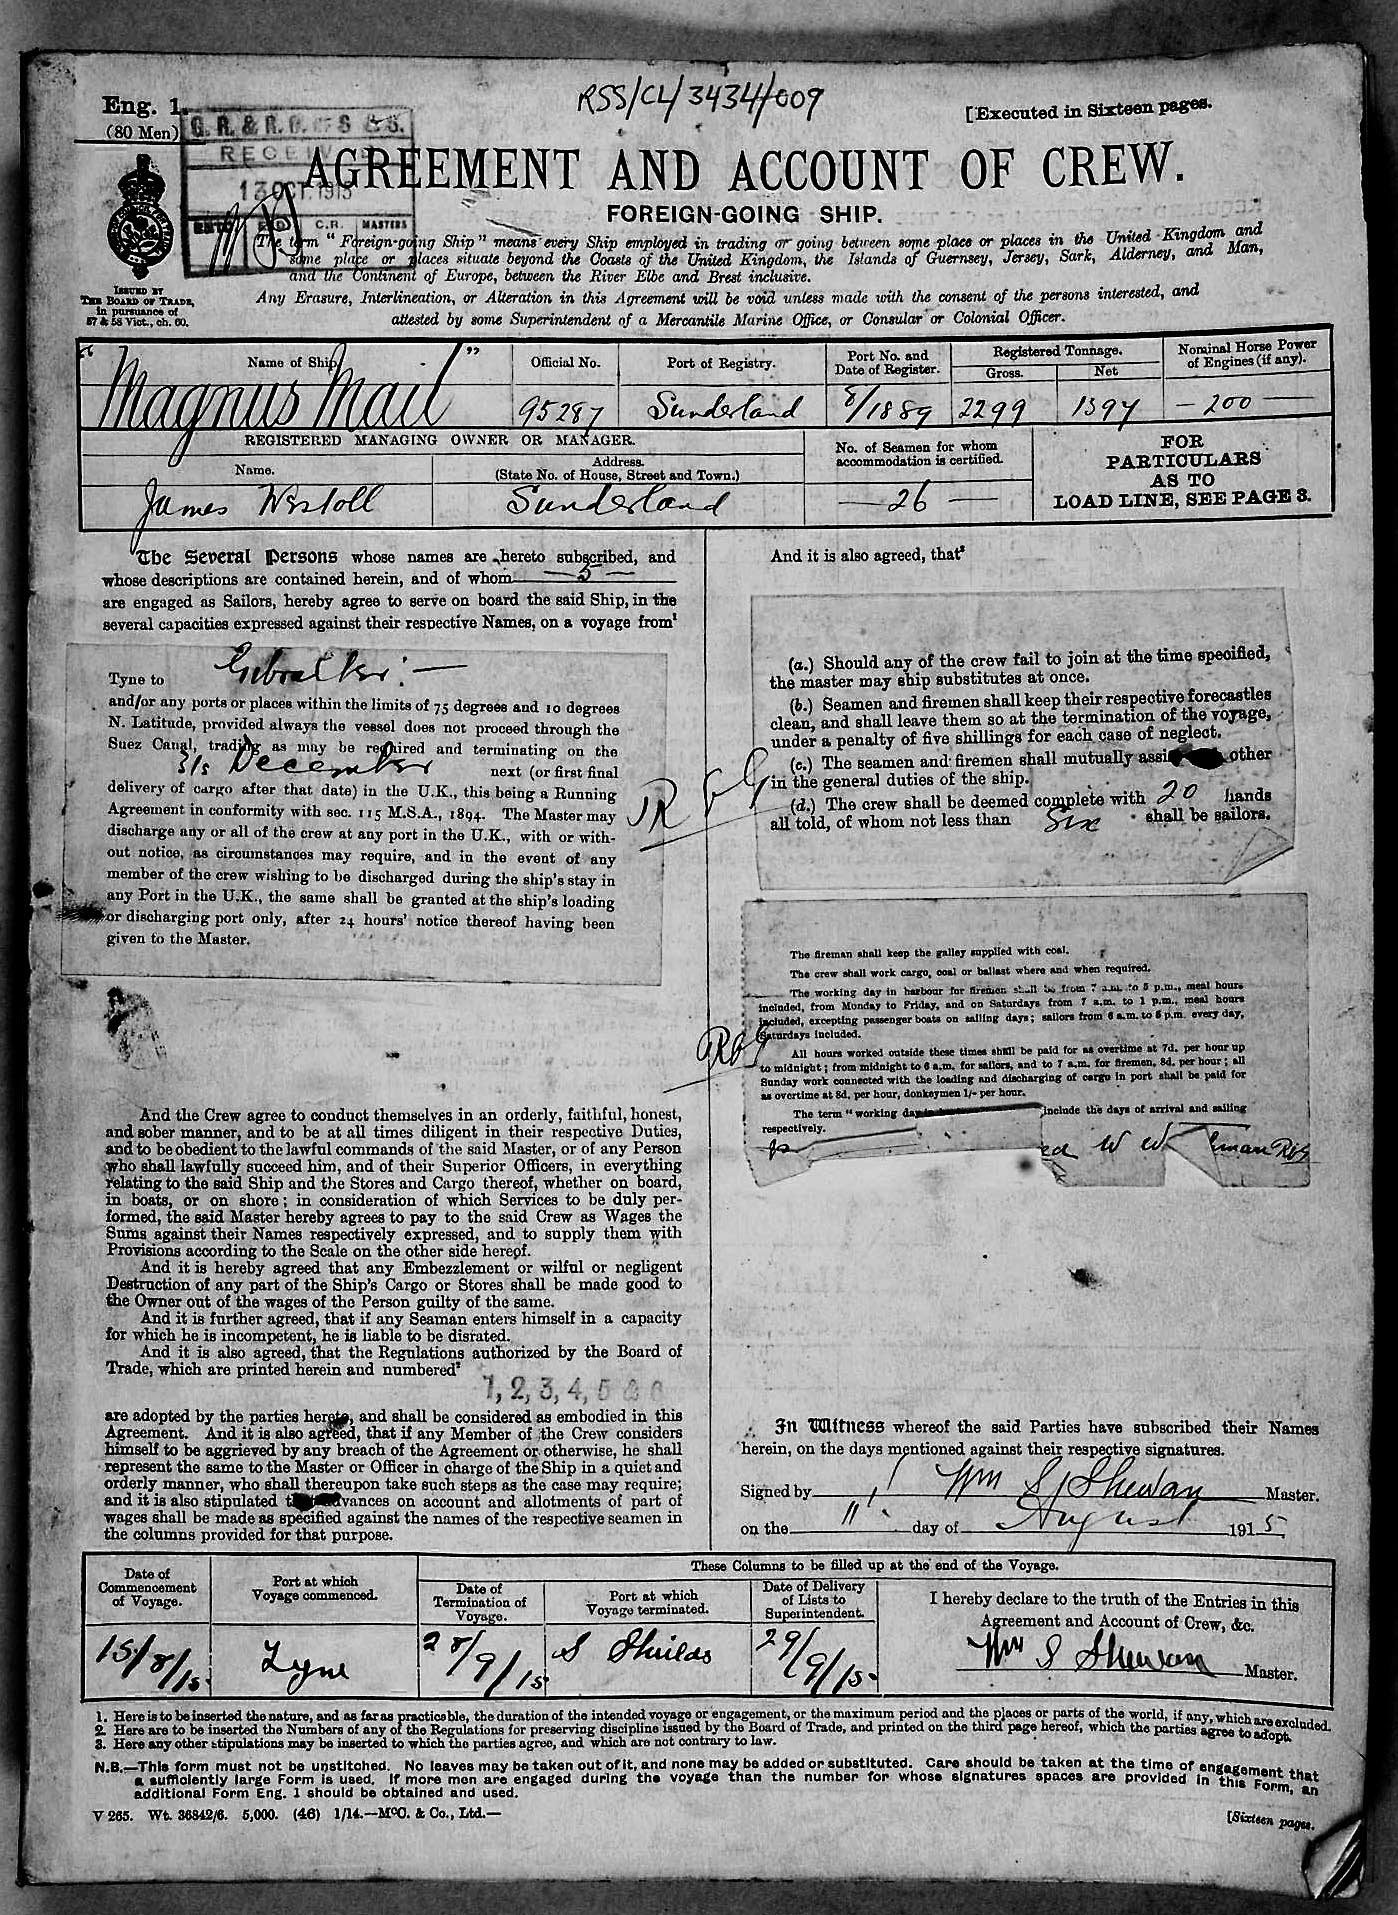 RSS/CL/3434/009
Eng. 1.
(80 Men)
[Executed in Sixteen pages.
G. R. & R. O. OF S & S.
RECEIVED
13 OCT. 1915
C.R. MASTERS
AGREEMENT AND ACCOUNT OF CREW.
FOREIGN-GOING SHIP.
The term "Foreign-going Ship" means every Ship employed in trading or going between some place or places in the United Kingdom and
some place or places situate beyond the Coasts of the United Kingdom, the Islands of Guernsey, Jersey, Sark, Alderney, and Man,
and the Continent of Europe, between the River Elbe and Brest inclusive.
Any Erasure, Interlineation, or Alteration in this Agreement will be void unless made with the consent of the persons interested, and
attested by some Superintendent of a Mercantile Marine Office, or Consular or Colonial Officer.
ISSUED BY
THE BOARD OF TRADE,
in pursuance of
57 & 58 Vict., ch. 60.
Name of Ship. Official No. Port of Registry. Port No. and Date of Register. Registered Tonnage. Gross. Net Nominal Horse Power of Engines (if any).
"Magnus Mail" 95287 Sunderland 8/1889 2299 1397 — 200 —
REGISTERED MANAGING OWNER OR MANAGER.
Name. Address. (State No. of House, Street and Town.) No. of Seamen for whom accommodation is certified.
James Westoll Sunderland — 26 —
FOR
PARTICULARS
AS TO
LOAD LINE, SEE PAGE 3.
The Several Persons whose names are hereto subscribed, and
whose descriptions are contained herein, and of whom — 5 —
are engaged as Sailors, hereby agree to serve on board the said Ship, in the
several capacities expressed against their respective Names, on a voyage from¹
Tyne to Gibralter: —
and/or any ports or places within the limits of 75 degrees and 10 degrees
N. Latitude, provided always the vessel does not proceed through the
Suez Canal, trading as may be required and terminating on the
31s December next (or first final
delivery of cargo after that date) in the U.K., this being a Running
Agreement in conformity with sec. 115 M.S.A., 1894. The Master may
discharge any or all of the crew at any port in the U.K., with or with-
out notice, as circumstances may require, and in the event of any
member of the crew wishing to be discharged during the ship's stay in
any Port in the U.K., the same shall be granted at the ship's loading
or discharging port only, after 24 hours' notice thereof having been
given to the Master.
And the Crew agree to conduct themselves in an orderly, faithful, honest,
and sober manner, and to be at all times diligent in their respective Duties,
and to be obedient to the lawful commands of the said Master, or of any Person
who shall lawfully succeed him, and of their Superior Officers, in everything
relating to the said Ship and the Stores and Cargo thereof, whether on board,
in boats, or on shore; in consideration of which Services to be duly per-
formed, the said Master hereby agrees to pay to the said Crew as Wages the
Sums against their Names respectively expressed, and to supply them with
Provisions according to the Scale on the other side hereof.
And it is hereby agreed that any Embezzlement or wilful or negligent
Destruction of any part of the Ship's Cargo or Stores shall be made good to
the Owner out of the wages of the Person guilty of the same.
And it is further agreed, that if any Seaman enters himself in a capacity
for which he is incompetent, he is liable to be disrated.
And it is also agreed, that the Regulations authorized by the Board of
Trade, which are printed herein and numbered²
1, 2, 3, 4, 5 & 6
are adopted by the parties hereto, and shall be considered as embodied in this
Agreement. And it is also agreed, that if any Member of the Crew considers
himself to be aggrieved by any breach of the Agreement or otherwise, he shall
represent the same to the Master or Officer in charge of the Ship in a quiet and
orderly manner, who shall thereupon take such steps as the case may require;
and it is also stipulated that advances on account and allotments of part of
wages shall be made as specified against the names of the respective seamen in
the columns provided for that purpose.
And it is also agreed, that³
(a.) Should any of the crew fail to join at the time specified,
the master may ship substitutes at once.
(b.) Seamen and firemen shall keep their respective forecastles
clean, and shall leave them so at the termination of the voyage,
under a penalty of five shillings for each case of neglect.
(c.) The seamen and firemen shall mutually assi other
in the general duties of the ship.
(d.) The crew shall be deemed complete with 20 hands
all told, of whom not less than Six shall be sailors.
The fireman shall keep the galley supplied with coal.
The crew shall work cargo, coal or ballast where and when required.
The working day in harbour for firemen shall be from 7 a.m. to 5 p.m., meal hours
included, from Monday to Friday, and on Saturdays from 7 a.m. to 1 p.m., meal hours
included, excepting passenger boats on sailing days; sailors from 6 a.m. to 5 p.m. every day,
Saturdays included.
All hours worked outside these times shall be paid for as overtime at 7d. per hour up
to midnight; from midnight to 6 a.m. for sailors, and to 7 a.m. for firemen, 8d. per hour; all
Sunday work connected with the loading and discharging of cargo in port shall be paid for
as overtime at 8d. per hour, donkeymen 1/- per hour.
The term "working day include the days of arrival and sailing
respectively.
In Witness whereof the said Parties have subscribed their Names
herein, on the days mentioned against their respective signatures.
Signed by Wm S Shewan Master.
on the 11 day of August 1915
Date of Commencement of Voyage. Port at which Voyage commenced. These Columns to be filled up at the end of the Voyage.
Date of Termination of Voyage. Port at which Voyage terminated. Date of Delivery of Lists to Superintendent. I hereby declare to the truth of the Entries in this Agreement and Account of Crew, &c.
15/8/15 Tyne 28/9/15 S Shields 29/9/15 Wm S Shewan Master.
1. Here is to be inserted the nature, and as far as practicable, the duration of the intended voyage or engagement, or the maximum period and the places or parts of the world, if any, which are excluded.
2. Here are to be inserted the Numbers of any of the Regulations for preserving discipline issued by the Board of Trade, and printed on the third page hereof, which the parties agree to adopt.
3. Here any other stipulations may be inserted to which the parties agree, and which are not contrary to law.
N.B.—This form must not be unstitched. No leaves may be taken out of it, and none may be added or substituted. Care should be taken at the time of engagement that
a sufficiently large Form is used. If more men are engaged during the voyage than the number for whose signatures spaces are provided in this Form, an
additional Form Eng. 1 should be obtained and used.
V 265. Wt. 36842/6. 5,000. (46) 1/14.—McC. & Co., Ltd.—
[Sixteen pages.